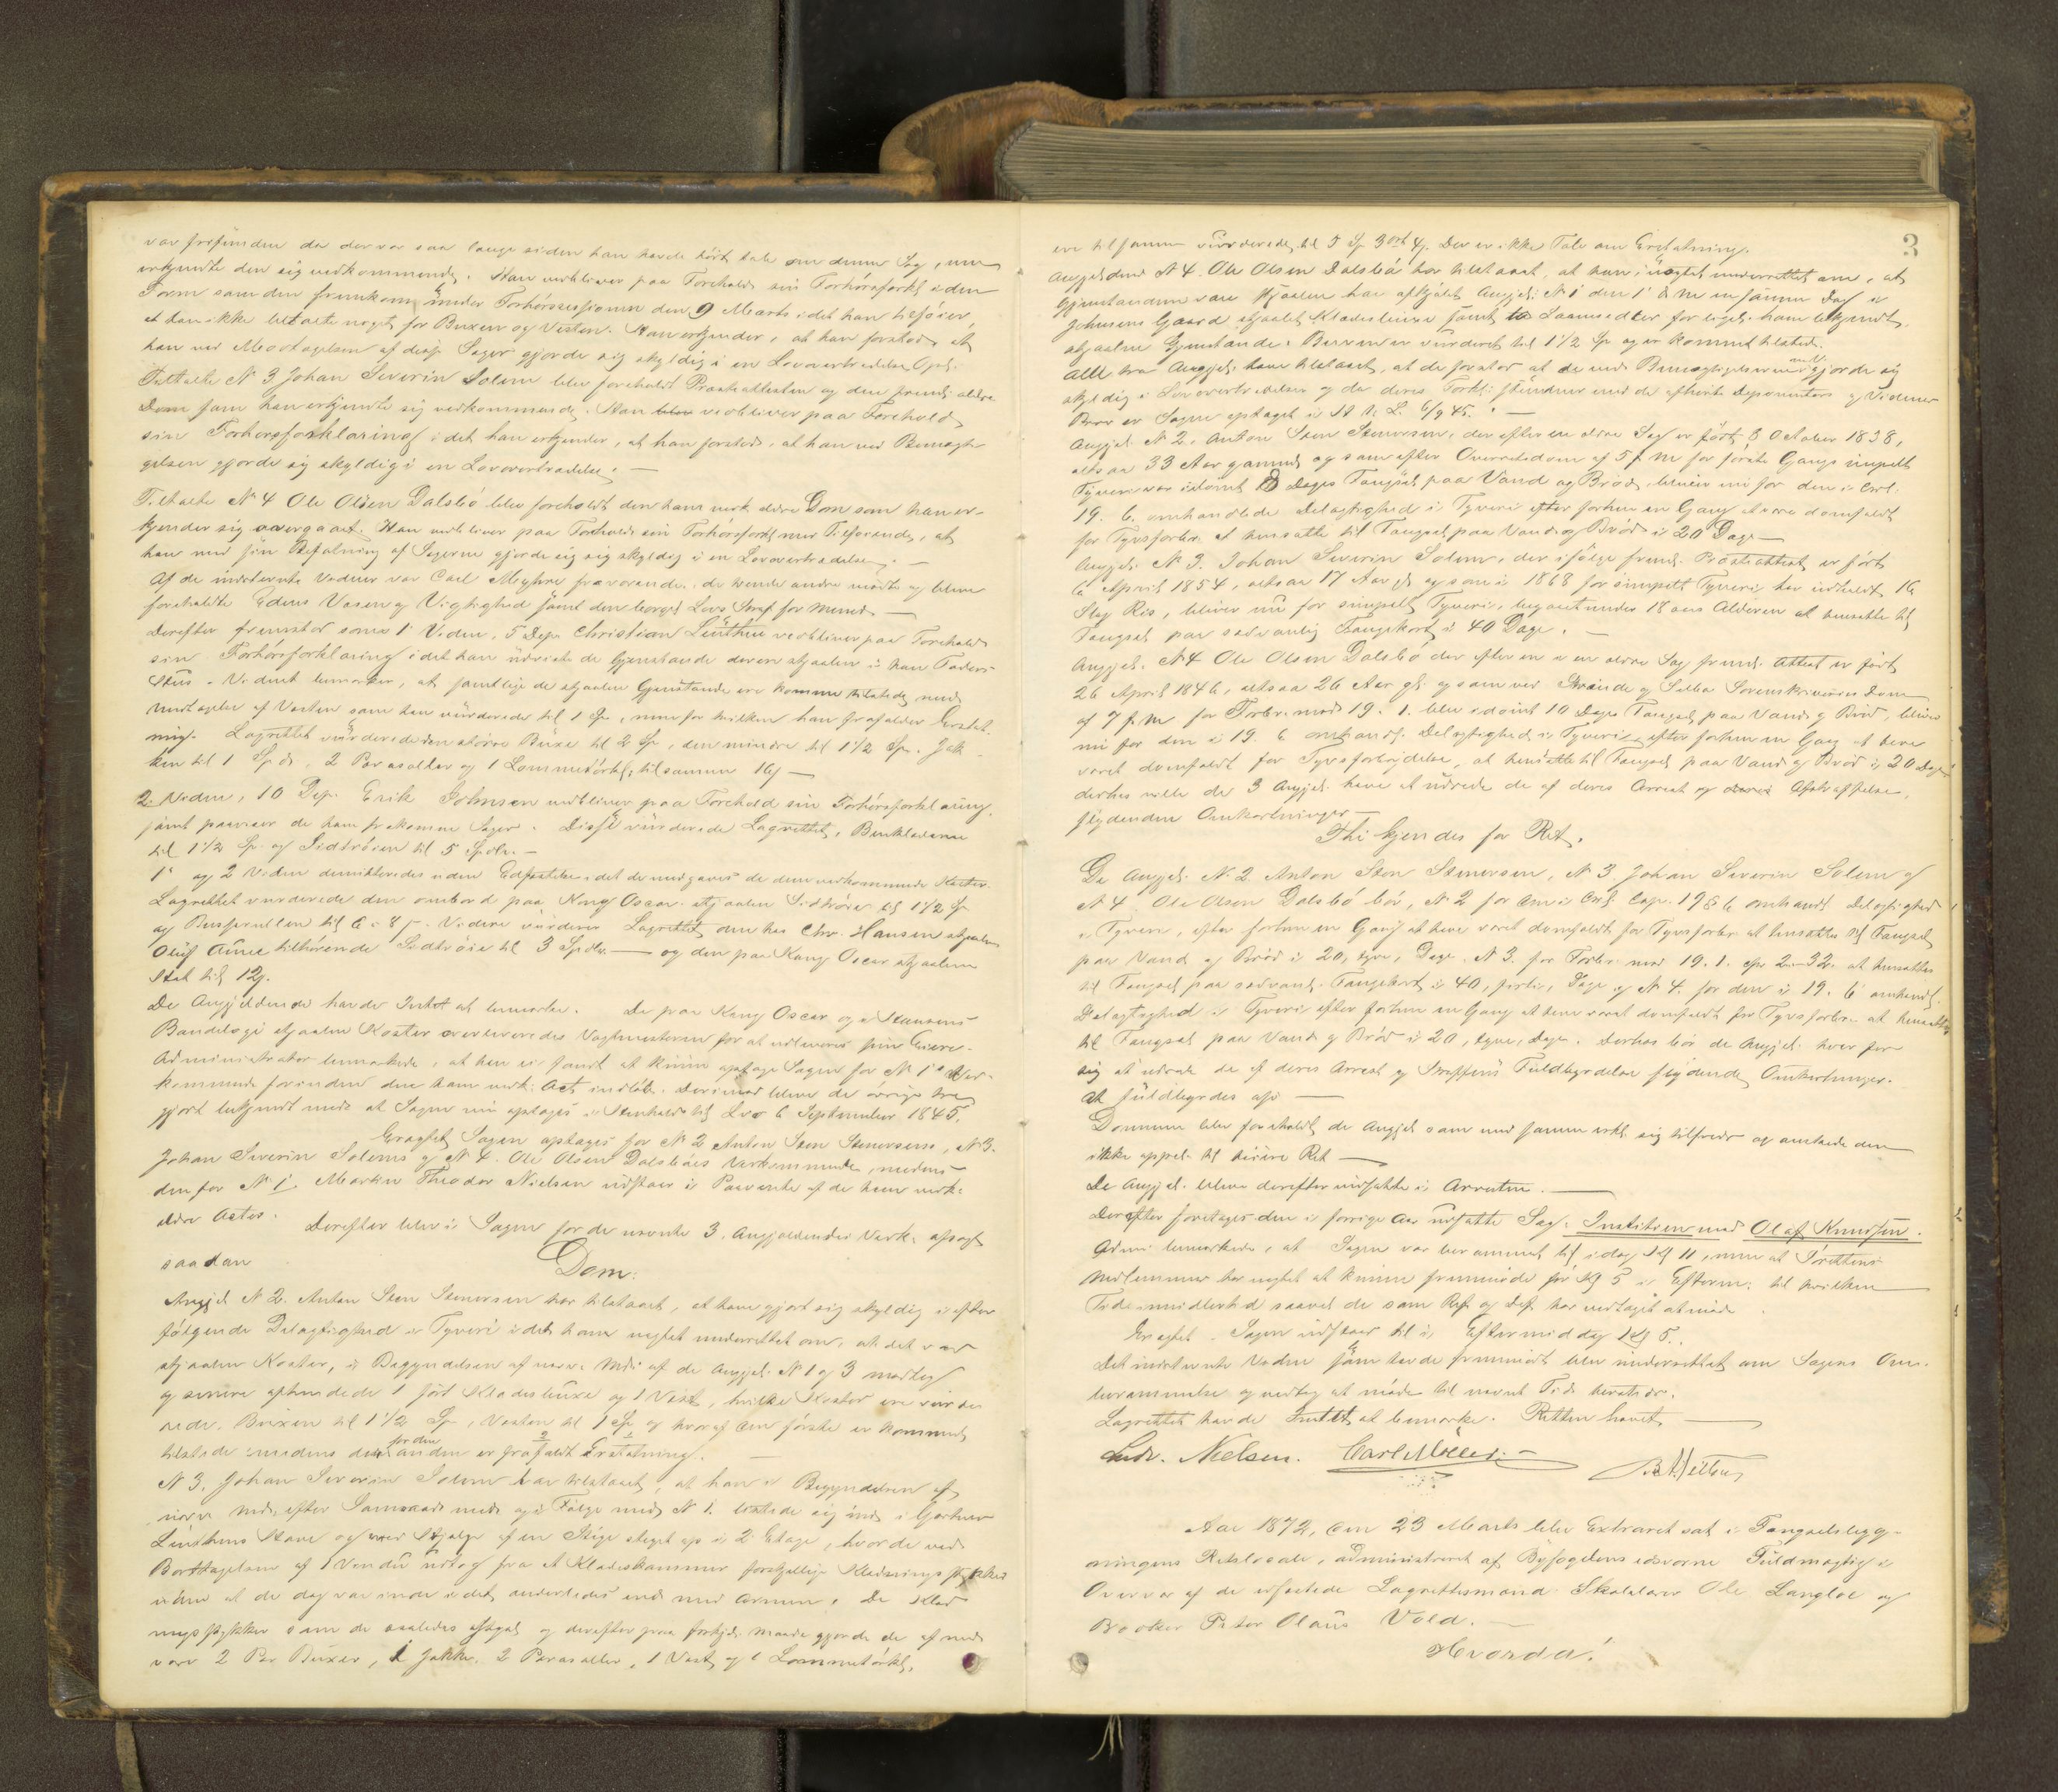 var forsømden da der var saa længe siden han havde hørt tale om denne Sag, men
erkjendte den sig vedkommende. Han vedbliver paa Forehold sin Forhørsforkl. i den
Form som den fremkom under Forhørssessionen den 9 Marts idet han tilføier,
at han ikke betalte noget for Buxen og Vesten. Han erkjender, at han forstod, at
han ved Modtagelsen af disse Sager gjorde sig skyldig i en Lovovertrædelse
Tiltalte N 3 Johan Severin Solem blev foreholdt Præsteattesten og den ældre
Dom som han erkjendte sig vedkommende. Han vedbliver paa Forehold
sin Forhørsforklaring idet han erkjender, at han forstod, at han ved Bemægti-
gelsen gjorde sig skyldig i en Lovovertrædelse. —
Tiltalte N 4 Ole Olsen Dalsbø blev foreholdt den ham vedk. ældre Dom som han er-
kjender sig overgaaet. Han vedbliver paa Forhold sin Forhørsforkl. med Tilføiende, at
han med sin Befatning af Sagerne gjorde sig skyldig i en Lovovertrædelse. —
Af de indstevnte Vidner var Carl Meyhre fraværende, de andre mødte og bleve
foreholdte Edens Væsen og Vigtighed samt den borgerl. Lovs Straf for Meened —
Derefter fremstod som 1 Vidne, 5 Dep. Christian Lüthen vedbliver paa Forehold
sin Forhørsforklaring idet han
Huus. Vidnet bemærker, at samtlige de stjaalne Gjenstande ere komne tilstede med
Undtagelse af Vesten som han vurderede til 1 Sp, men for hvilken han frafalder Erstat-
ning. Lagrettet vurderede den større Buxe til 2 Sp, den mindre til 1 1/2 Sp. Jak-
ken til 1 Sp, 2 Parasoller og 1 Lommetørkl. tilsammen
2. Vidne, 10 Dep. Erik Johnsen vedbliver paa Forehold sin Forhørsforklaring,
samt paaviser de ham frakomne Sager. Disse vurderede Lagrettet, Benklæderne
til 1 1/2 Sp. og Sidtrøien til 5 Spdlr. —
1 og 2 Vidne dimitteredes uden Edfæstelse idet de medgaves de dem vedkommende Koster.
Lagrettet vurderede den ombord paa Kong Oscar stjaalne Sidtrøie til 1 1/2 Sp
Videre vurderer Lagrettet den hos Chr. Hansen stjaalne
Oluf Aune tilhørende Sidtrøie til 3 Spdlr. — og den paa Kong Oscar stjaalne
Hat til
De Angjældende havde Intet at bemærke. De paa Kong Oscar og i Hansens
Bandelogi stjaalne Koster overleveredes Vagtmesteren for at udleveres sine Eiere.
Administrator bemærkede, at han ei fandt at kunne optage Sagen for N 1 Ved-
kommende forinden den ham vedk. Act indløb. Derimod bleve de øvrige tre
gjort bekjendt med at Sagen nu optages i Henhold til Lov 6 September 1845.
Eragtet Sagen optages for N 2 Anton Sten Stenersens, N 3.
Johan Severin Solems og N 4. Ole Olsen Dalsbøs Vedkommende, medens
den for N 1. Theodor Nielsen udstaar i Paavente af de ham vedk.
ældre Acter.
Derefter blev i Sagen for de nævnte 3. Angjældendes Vedk. afsagt
saadan
Dom:
Angjæl. N 2. Anton Sten Stenersen har tilstaaet, at have gjort sig skyldig i efter
følgende Delagtighed i Tyveri idet han uagtet underrettet om, at det var
stjaalne Koster, i Begyndelsen af nærv. Md. af de Angjæl. N 1 og 3 modtog
og senere afhændede 1 sort Klædesbuxe og 1 Vest, hvilke Koster ere vurde-
rede, Buxen til 1 1/2 Sp, Vesten til 1 Sp og hvoraf den første er kommet
tilstede medens der for den anden er frafaldt Erstatning. —
N 3. Johan Severin Solem har tilstaaet, at han i Begyndelsen af
nærv. Md. efter Samraad med og i Følge med N 1. listede sig ind i Gartner
Lüthens Have og med Hjælp af en Stige steget op i 2 Etage, hvor de ved
Borttagelsen af 1 Vindu udtog fra et Klædeskammer forskjellige Klædningsstykker
uden at de dog var inde i det anderledes end med Armene. De Klæd-
ningsstykker som de saaledes og derefter paa forskjel. Maade gjorde de af med
vare 2 Par Buxer, 1 Jakke, 2 Parasoller, 1 Vest og 1 Lommetørkl.
3
ere tilsammen vurderede til 5 Sp 3 ort 4. Der er ikke Tale om Erstatning.
Angjældende N 4. Ole Olsen Dalsbø har tilstaaet, at han, uagtet underrettet om, at
Gjenstandene vare stjaalne har afkjøbt Angjæl. N 1 den i
Johnsens Gaard stjaalet Klædesbuxe samt to Laanesedler for ligel. ham bekjendt
stjaalne Gjenstande. Buxen er vurderet til 1 1/2 Sp og er kommet tilstede.
Alle tre Angjæl. have tilstaaet, at de forstod at de ved Bemægtigelsen gjorde sig
skyldig i Lovovertrædelser og da deres Forkl. stemmer med de afhørte Deponenters og Vidners
Prov er Sagen optaget i H. t. L. 6/9 45. —
Angjæl. N 2. Anton Sten Stenersen, der efter en ældre Sag er født 8 October 1838,
altsaa 33 Aar gammel og som efter Overretsdom af 5 f. M for første Gangs simpelt
Tyveri var idømt 8 Dages Fængsel paa Vand og Brød, bliver nu for den i Crl.
19. 6. omhandlede Delagtighed i Tyveri efter forhen en Gang at være domfældt
for Tyvsforbr. at hensætte til Fængsel paa Vand og Brød i 20 Dage —
Angjæl. N 3. Johan Severin Solem, der ifølge freml. Præsteattest er født
6 April 1854, altsaa 17 Aar gl. og som i 1868 for simpelt Tyveri har udholdt 16
Slag Ris, bliver nu for simpelt Tyveri, begaaet under 18 Aars Alderen at hensætte til
Fængsel paa sædvanlig Fangekost i 40 Dage. —
Angjæl. N 4 Ole Olsen Dalsbø der efter en i en ældre Sag freml. Attest er født
26 April 1846, altsaa 26 Aar gl. og som ved Strinde og Selbo Sorenskriveries Dom
af 7 f. M for Forbr. mod 19. 1. blev idømt 10 Dages Fængsel paa Vand og Brød, bliver
nu for den i 19. 6 omhandl. Delagtighed i Tyveri efter forhen en Gang at have
været domfældt for Tyvsforbrydelse, at hensætte til Fængsel paa Vand og Brød i 20 Dage
derhos ville de 3 Angjæl. have at udrede de af deres Arrest og Afstraffelse,
flydende Omkostninger —
Thi kjendes for Ret.
De Angjæl. N. 2. Anton Sten Stenersen, N 3. Johan Severin Solem og
N 4. Ole Olsen Dalsbø bør, N 2 for den i Crl. Cap. 19 § 6 omhandl. Delagtighed
i Tyveri, efter forhen en Gang at have været domfældt for Tyvsforbr. at hensættes til Fængsel
paa Vand og Brød i 20, tyve, Dage. N 3. for Forbr. mod 19. 1. cfr 2.-32. at hensættes
til Fængsel paa sædvanl. Fangekost i 40, firti, Dage og N 4. for den i 19. 6 omhandl.
Delagtighed i Tyveri efter forhen en Gang at have været domfældt for Tyvsforbr. at hensættes
til Fængsel paa Vand og Brød i 20, tyve, Dage. Derhos bør de Angjæl. hver for
sig at udrede de af deres Arrest og Straffens Fuldbyrdelse flydende Omkostninger.
At fuldbyrdes —
Dommen blev foreholdt de Angjæl. som med samme erkl. sig tilfreds og ønskede den
ikke appel. til høiere Ret —
De Angjæl. bleve derefter indsatte i Arresten. —
Derefter foretages den i forrige Aar udsatte Sag: Justitien mod Olaf Knudsen.
Adm. bemærkede, at Sagen var berammet til idag Kl 11, men at Rettens
Medlemmer har nægtet at kunne fremmøde før Kl 5 i Efterm. til hvilken
Tid imidlertid saavel de som Ref. og Def. har vedtaget at møde
Eragtet. Sagen udstaar til i Eftermiddag Kl 5.
Det indstevnte Vidne som havde fremmødt blev underrettet om Sagens Om-
berammelse og vedtog at møde til nævnt Tid herstedes.
Lagrettet havde Intet at bemærke. Retten hævet —
Ludv. Nielsen. Carl Møller. —
Aar 1872, den 23 Marts blev Extraret sat i Fængselsbyg-
ningens Retslocale, administreret af Byfogdens edsvorne Fuldmægtig i
Overvær af de edfæstede Lagrettesmænd Skolelærer Ole Langloe og
Bødker Peter Olaus Vold. —
Hvorda!